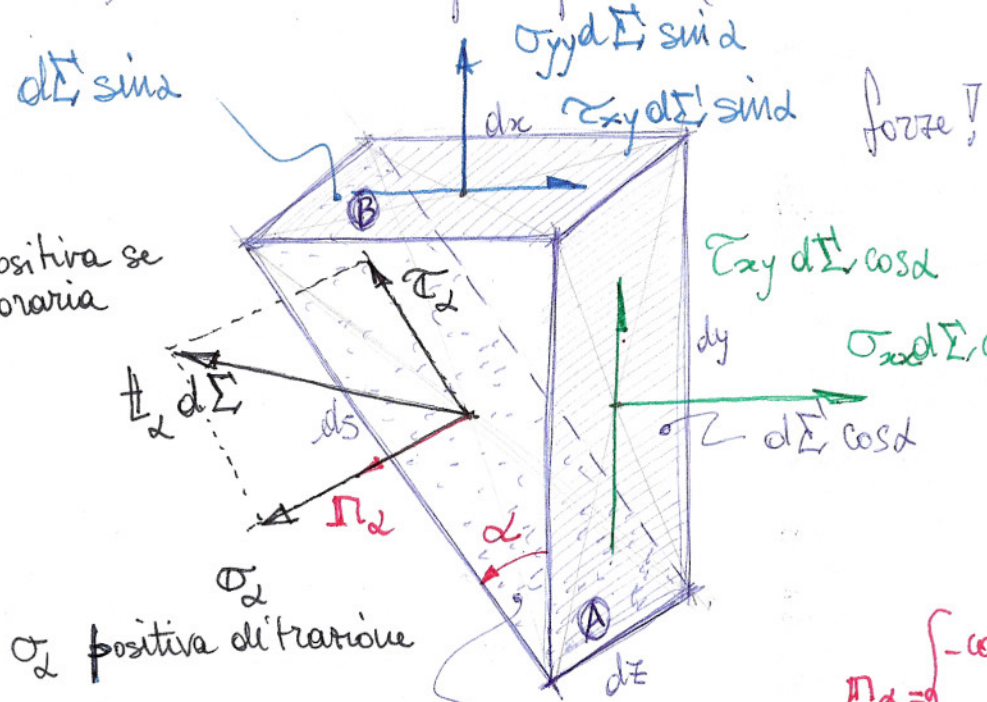 σyy dΣ sinα
dΣ sinα
τxy dΣ sinα
dx
forze!
B
ositiva se
oraria
τα
τxy dΣ cosα
dy
σxx dΣ c
tα dΣ
ds
dΣ cosα
nα
α
σα
A
σα positiva di trazione
dz
nα = { -co